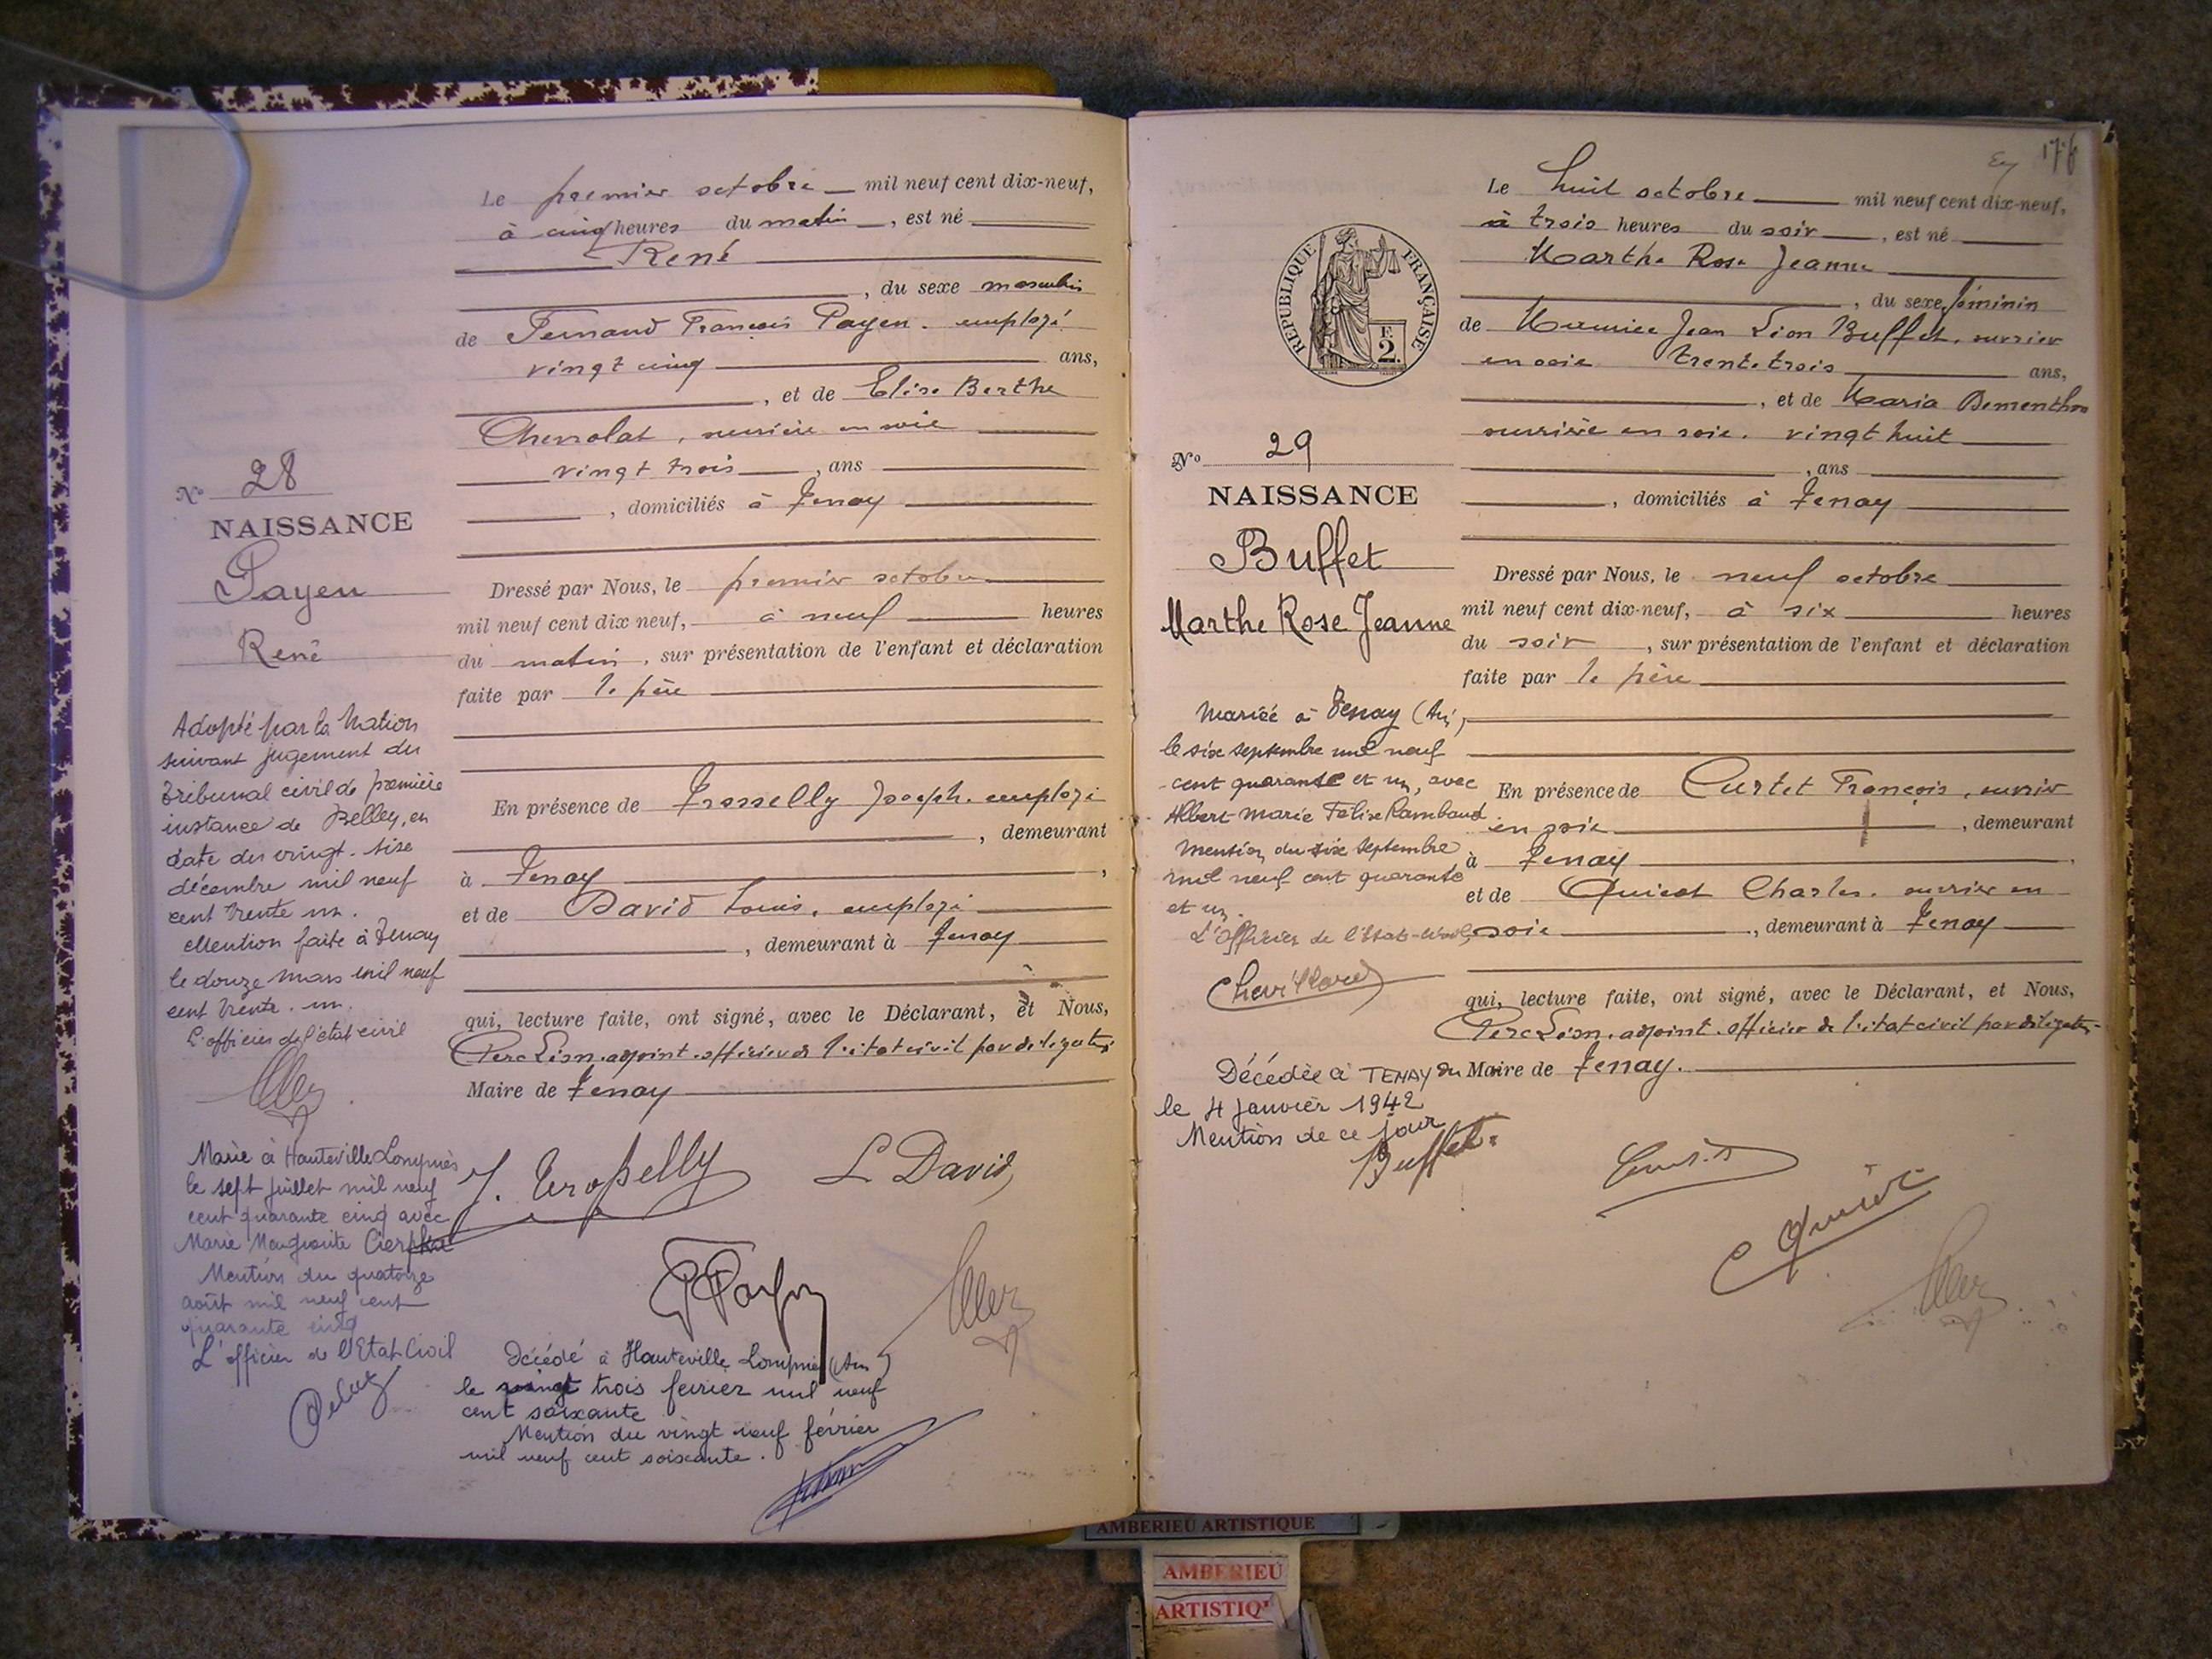 Le premier octobre mil neuf cent dix-neuf,
à cinq heures du matin, est né
René
, du sexe masculin
de Fernand François Payen. employé
vingt cinq ans,
, et de Elise Berthe
, ouvrière en soie
vingt trois, ans
, domiciliés à Tenay
Nº 28
NAISSANCE
Payen
René
Dressé par Nous, le premier octobre
mil neuf cent dix neuf, à neuf heures
du matin, sur présentation de l'enfant et déclaration
faite par le père
En présence de Joseph. employé
, demeurant
à Tenay,
et de David Louis, employé
, demeurant à Tenay
qui, lecture faite, ont signé, avec le Déclarant, et Nous,
Perc Léon. adjoint. officier de l'état civil par délégation
Maire de Tenay
Adopté par la Nation
suivant jugement du
tribunal civil de première
instance de Belley, en
date du vingt-
décembre mil neuf
cent trente un.
Mention faite à Tenay
le douze mars mil neuf
cent trente. un.
L'officier de l'état civil
Marié à Hauteville Lompnès
le sept juillet mil neuf
cent quarante cinq avec
Marie Marguerite
Mention du quatorze
août mil neuf cent
quarante cinq
L'officier de l'Etat Civil
L David
Décédé à Hauteville Lompnes (Ain)
le vingt trois fevrier mil neuf
cent soixante
Mention du vingt neuf février
mil neuf cent soixante.
176
Le huit octobre mil neuf cent dix-neuf,
à trois heures du soir, est né
Marthe Rose Jeanne
, du sexe féminin
de Maurice Jean Léon Buffet, ouvrier
en soie trente trois ans,
, et de Maria
ouvrière en soie. vingt huit
, ans
, domiciliés à Tenay
RÉPUBLIQUE FRANÇAISE
2
Nº 29
NAISSANCE
Buffet
Marthe Rose Jeanne
Dressé par Nous, le neuf octobre
mil neuf cent dix-neuf, à six heures
du soir, sur présentation de l'enfant et déclaration
faite par le père
En présence de Curtet François, ouvrier
en soie, demeurant
à Tenay,
et de Quicot Charles. ouvrier en
soie, demeurant à Tenay
qui, lecture faite, ont signé, avec le Déclarant, et Nous,
Perc Léon. adjoint. officier de l'état civil par délégation
du Maire de Tenay.
Mariée à Tenay (Ain)
le six septembre mil neuf
cent quarante et un, avec
Albert Marie Félix Rambaud
Mention du six Septembre
mil neuf cent quarante
et un.
L'Officier de l'état-civil,
Chevillard
Décédée à TENAY
le 4 Janvier 1942
Mention de ce jour
Buffet
AMBERIEU ARTISTIQUE
AMBERIEU
ARTISTIQ